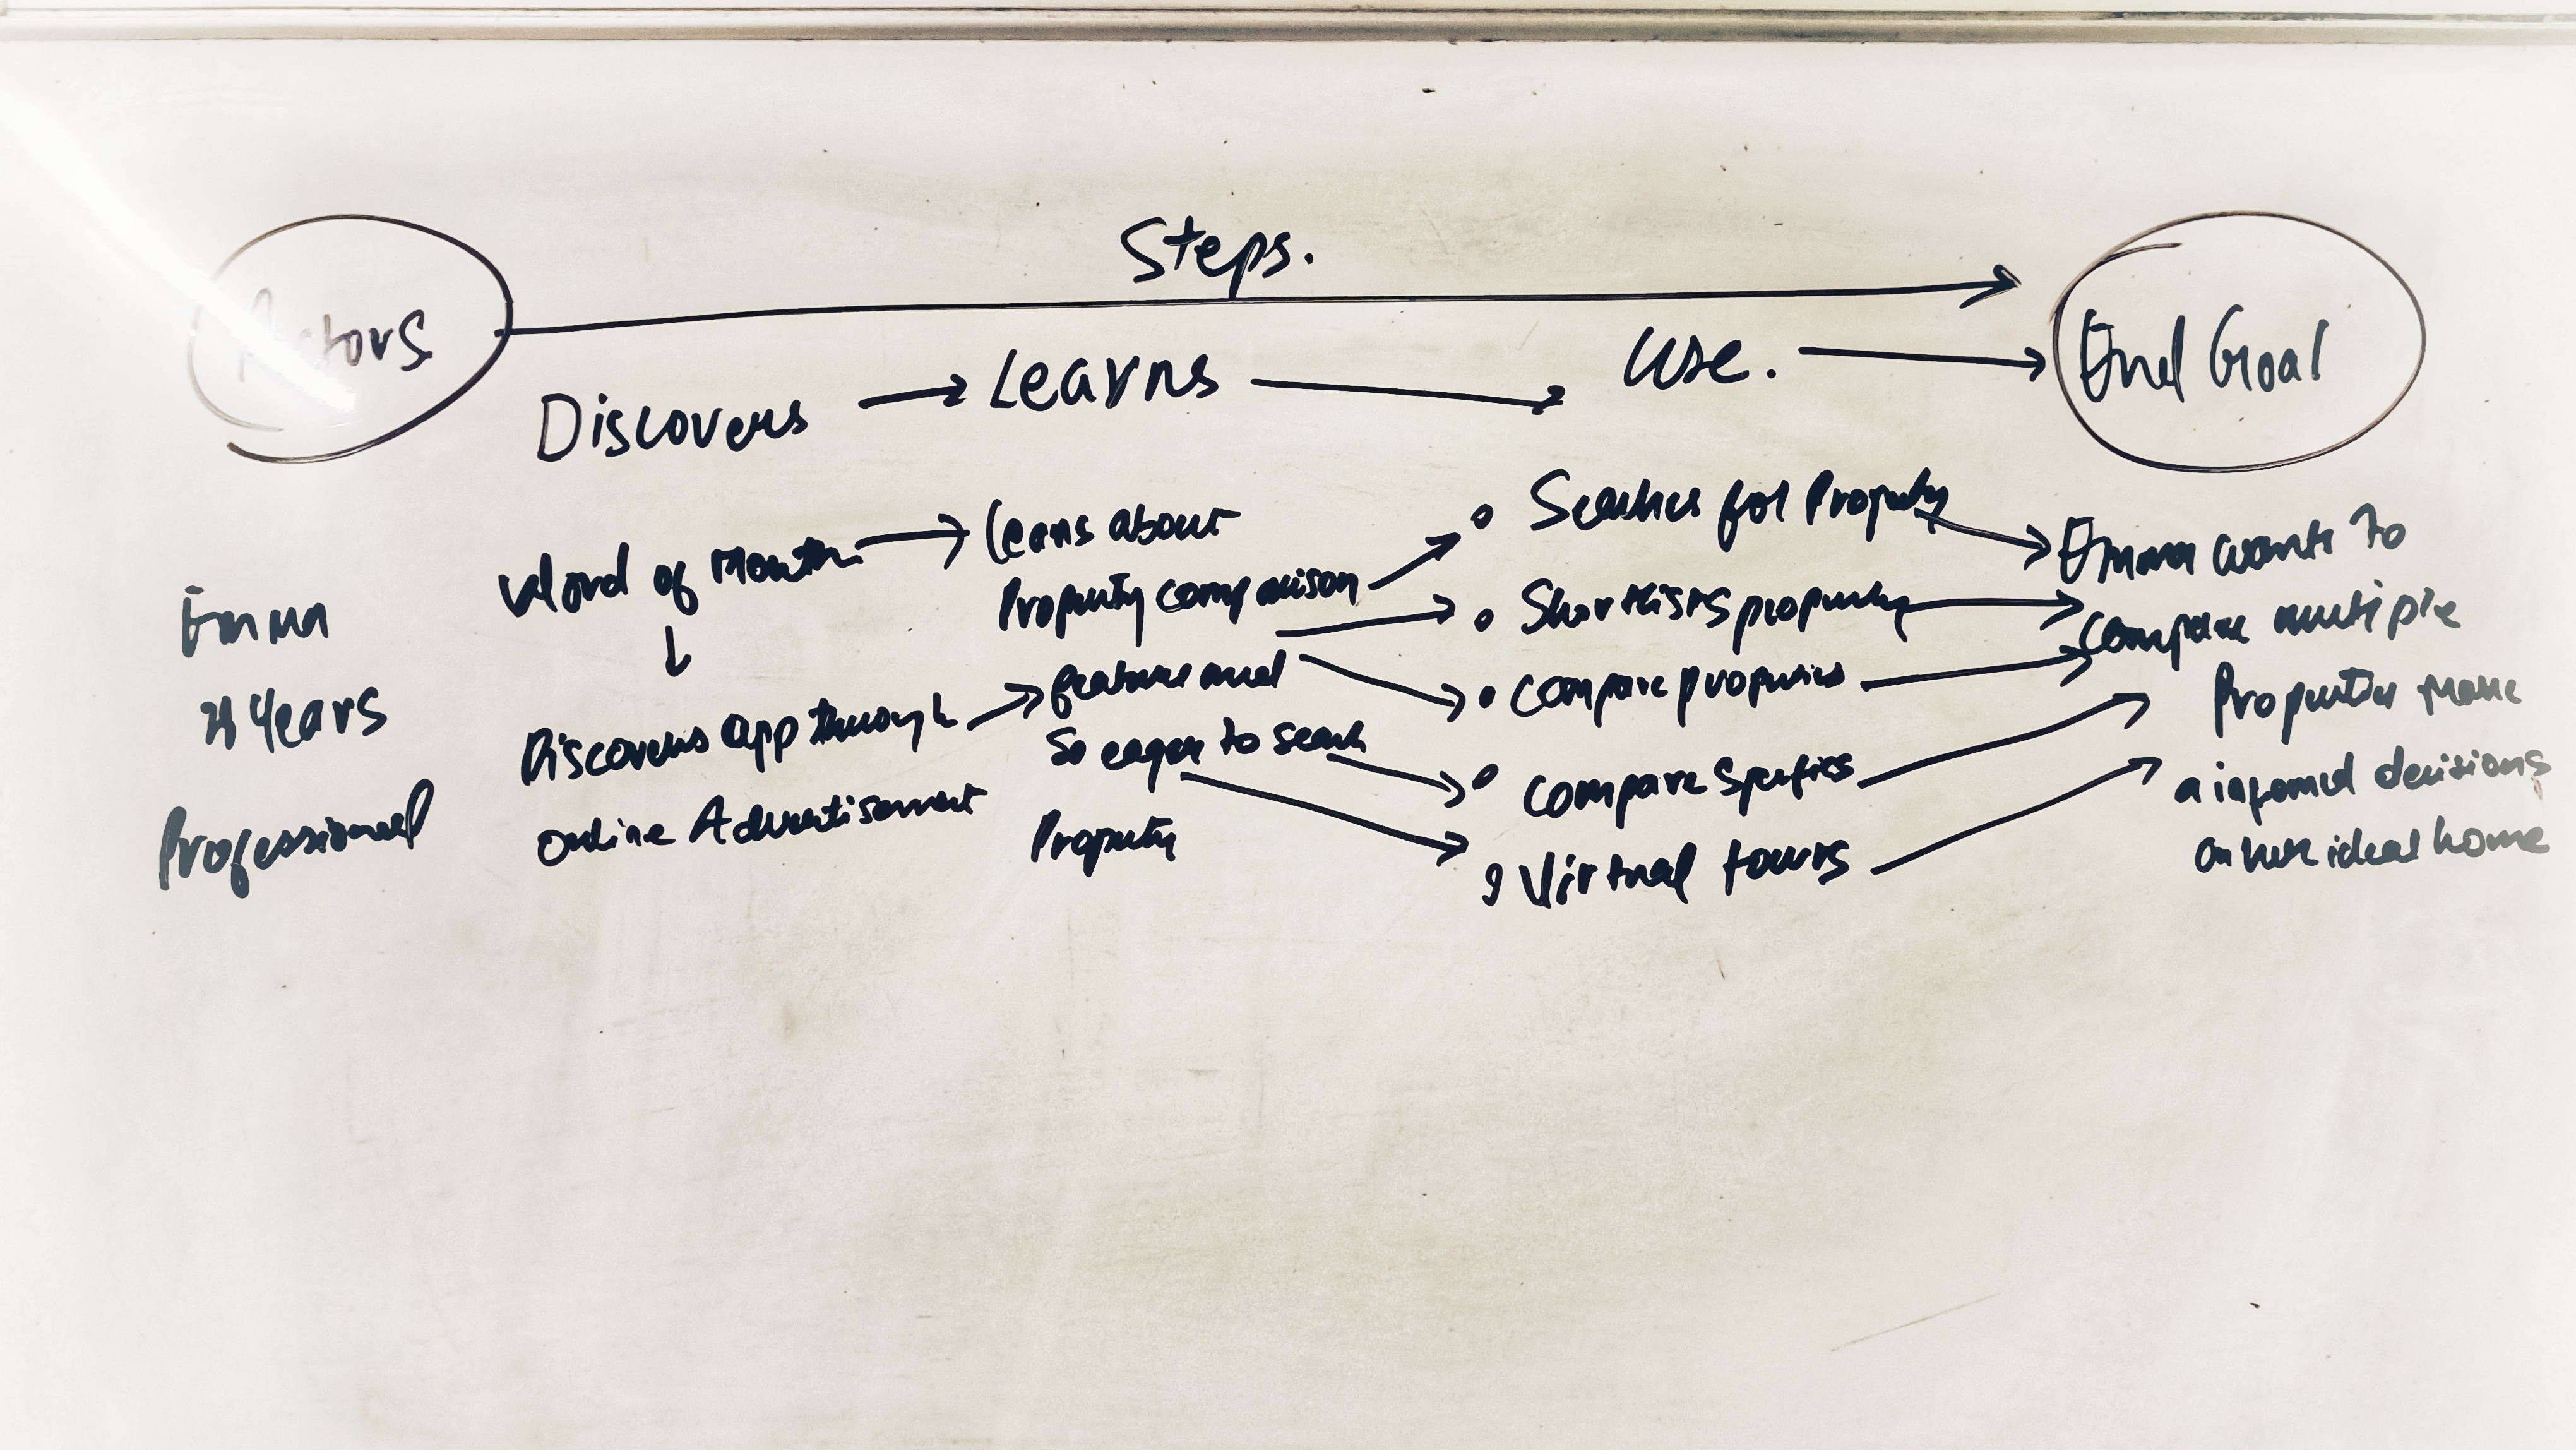 Steps.
Actors
Discovers
Learns
Use.
End Goal
Emma
Years
Professional
Word of Mouth
Discovers app through
online Advertisement
Learns about
Property comparison
feature and
So eager to search
Property
Searches for Property
Shortlists property
Compare properties
Compare Specifics
Virtual tours
Emma wants to
Compare multiple
Properties make
a informed decisions
on her ideal home